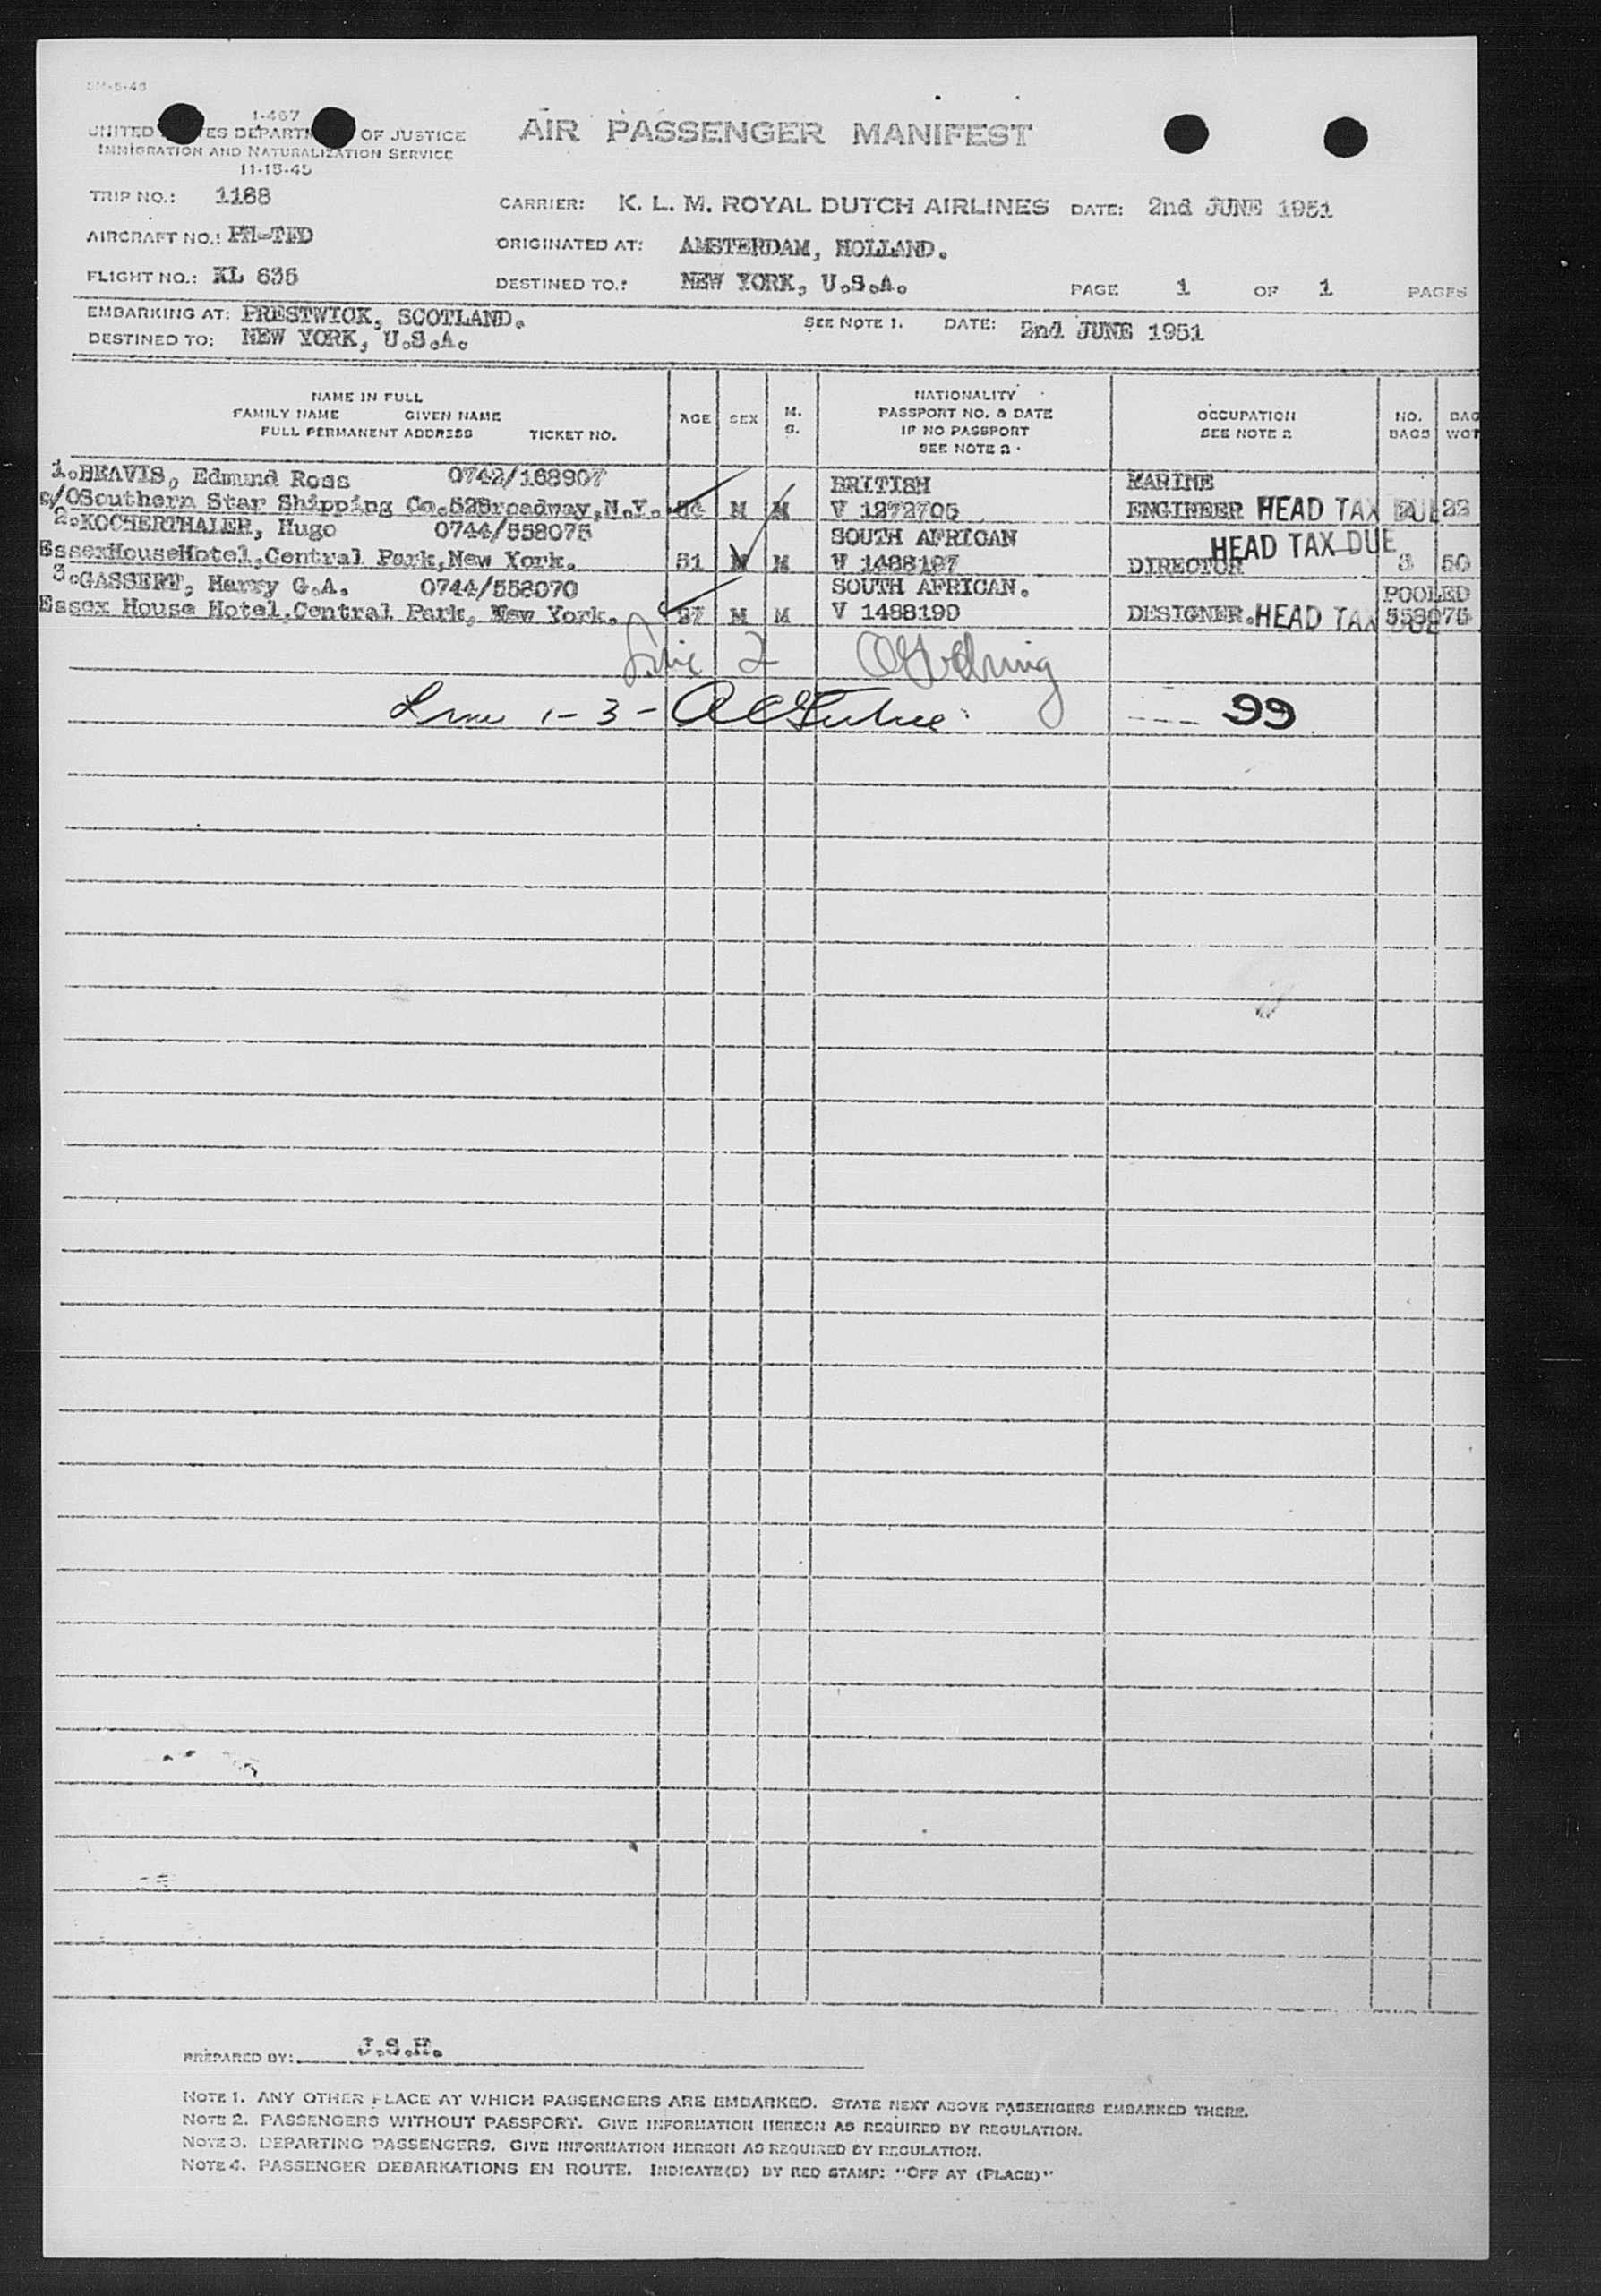 I-467
UNITED STATES DEPARTMENT OF JUSTICE
IMMIGRATION AND NATURALIZATION SERVICE
11-15-45
AIR PASSENGER MANIFEST
TRIP NO.: 1168
CARRIER: K. L. M. ROYAL DUTCH AIRLINES DATE: 2nd JUNE 1951
AIRCRAFT NO.: PH-TFD
ORIGINATED AT: AMSTERDAM, HOLLAND.
FLIGHT NO.: KL 635
DESTINED TO.: NEW YORK, U.S.A.
PAGE 1 OF 1 PAGES
EMBARKING AT: PRESTWICK, SCOTLAND. SEE NOTE 1. DATE: 2nd JUNE 1951
DESTINED TO: NEW YORK, U.S.A.
NAME IN FULL
FAMILY NAME GIVEN NAME
FULL PERMANENT ADDRESS TICKET NO.
AGE
SEX
M.
S.
NATIONALITY
PASSPORT NO. & DATE
IF NO PASSPORT
SEE NOTE 2
OCCUPATION
SEE NOTE 2
NO.
BAGS
BAG
WGT
1.BEAVIS, Edmund Ross 0742/168907 BRITISH MARINE
c/OSouthern Star Shipping Co.52Broadway,N.Y. M M V 1272705 ENGINEER HEAD TAX DUE 22
2.KOCHERTHALER, Hugo 0744/558075 SOUTH AFRICAN
EssexHouseHotel,Central Park,New York. 51 M M V 1488187 DIRECTOR HEAD TAX DUE 3 50
3.GASSERT, Harry G.A. 0744/558070 SOUTH AFRICAN. POOLED
Essex House Hotel,Central Park, New York. 37 M M V 1488190 DESIGNER. HEAD TAX DUE 558075
Line 2
Lines 1-3-
99
PREPARED BY: J.S.H.
NOTE 1. ANY OTHER PLACE AT WHICH PASSENGERS ARE EMBARKED. STATE NEXT ABOVE PASSENGERS EMBARKED THERE.
NOTE 2. PASSENGERS WITHOUT PASSPORT. GIVE INFORMATION HEREON AS REQUIRED BY REGULATION.
NOTE 3. DEPARTING PASSENGERS. GIVE INFORMATION HEREON AS REQUIRED BY REGULATION.
NOTE 4. PASSENGER DEBARKATIONS EN ROUTE. INDICATE(D) BY RED STAMP: "OFF AT (PLACE)"